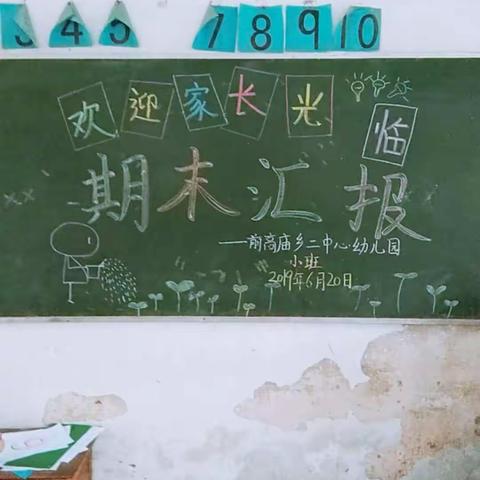 3 4 5 7 8 9 10
欢迎家长光临
期末汇报
——前高庙乡二中心幼儿园
小班
2019年6月20日